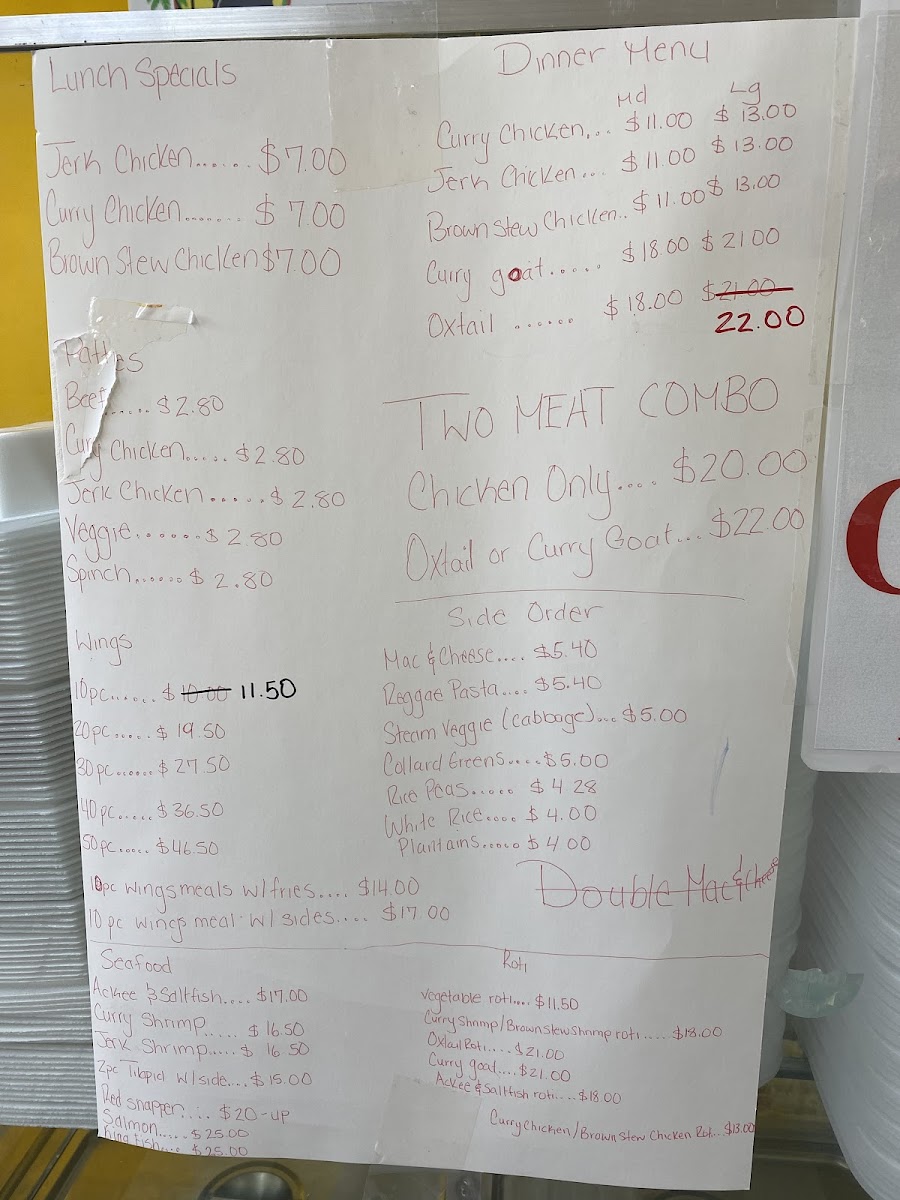 Lunch Specials
Jerk Chicken...... $7.00
Curry Chicken....... $7.00
Brown Stew Chicken $7.00
Patties
Beef..... $2.80
Curry Chicken..... $2.80
Jerk Chicken...... $2.80
Veggie....... $2.80
Spinch...... $2.80
Wings
10pc...... $10.00 11.50
20pc..... $19.50
30pc....... $27.50
40pc..... $36.50
50pc..... $46.50
10pc wings meals w/fries.... $14.00
10 pc wings meal w/ sides.... $17.00
Dinner Menu
Md Lg
Curry Chicken... $11.00 $13.00
Jerk Chicken... $11.00 $13.00
Brown Stew Chicken.. $11.00 $13.00
Curry goat..... $18.00 $21.00
Oxtail ...... $18.00 $21.00
22.00
TWO MEAT COMBO
Chicken Only.... $20.00
Oxtail or Curry Goat... $22.00
Side Order
Mac & Cheese.... $5.40
Reggae Pasta.... $5.40
Steam Veggie (cabbage)... $5.00
Collard Greens..... $5.00
Rice Peas...... $4.28
White Rice..... $4.00
Plantains..... $4.00
Double Mac & Cheese
Seafood
Ackee & Saltfish.... $17.00
Curry Shrimp..... $16.50
Jerk Shrimp..... $16.50
2pc Tilapid w/side.... $15.00
Red snapper.... $20-up
Salmon..... $25.00
King fish.... $25.00
Roti
Vegetable roti.... $11.50
Curry Shrimp/Brown stew shrimp roti..... $18.00
Oxtail Roti.... $21.00
Curry goat.... $21.00
Ackee & Saltfish roti.... $18.00
Curry Chicken/Brown Stew Chicken Roti... $13.00